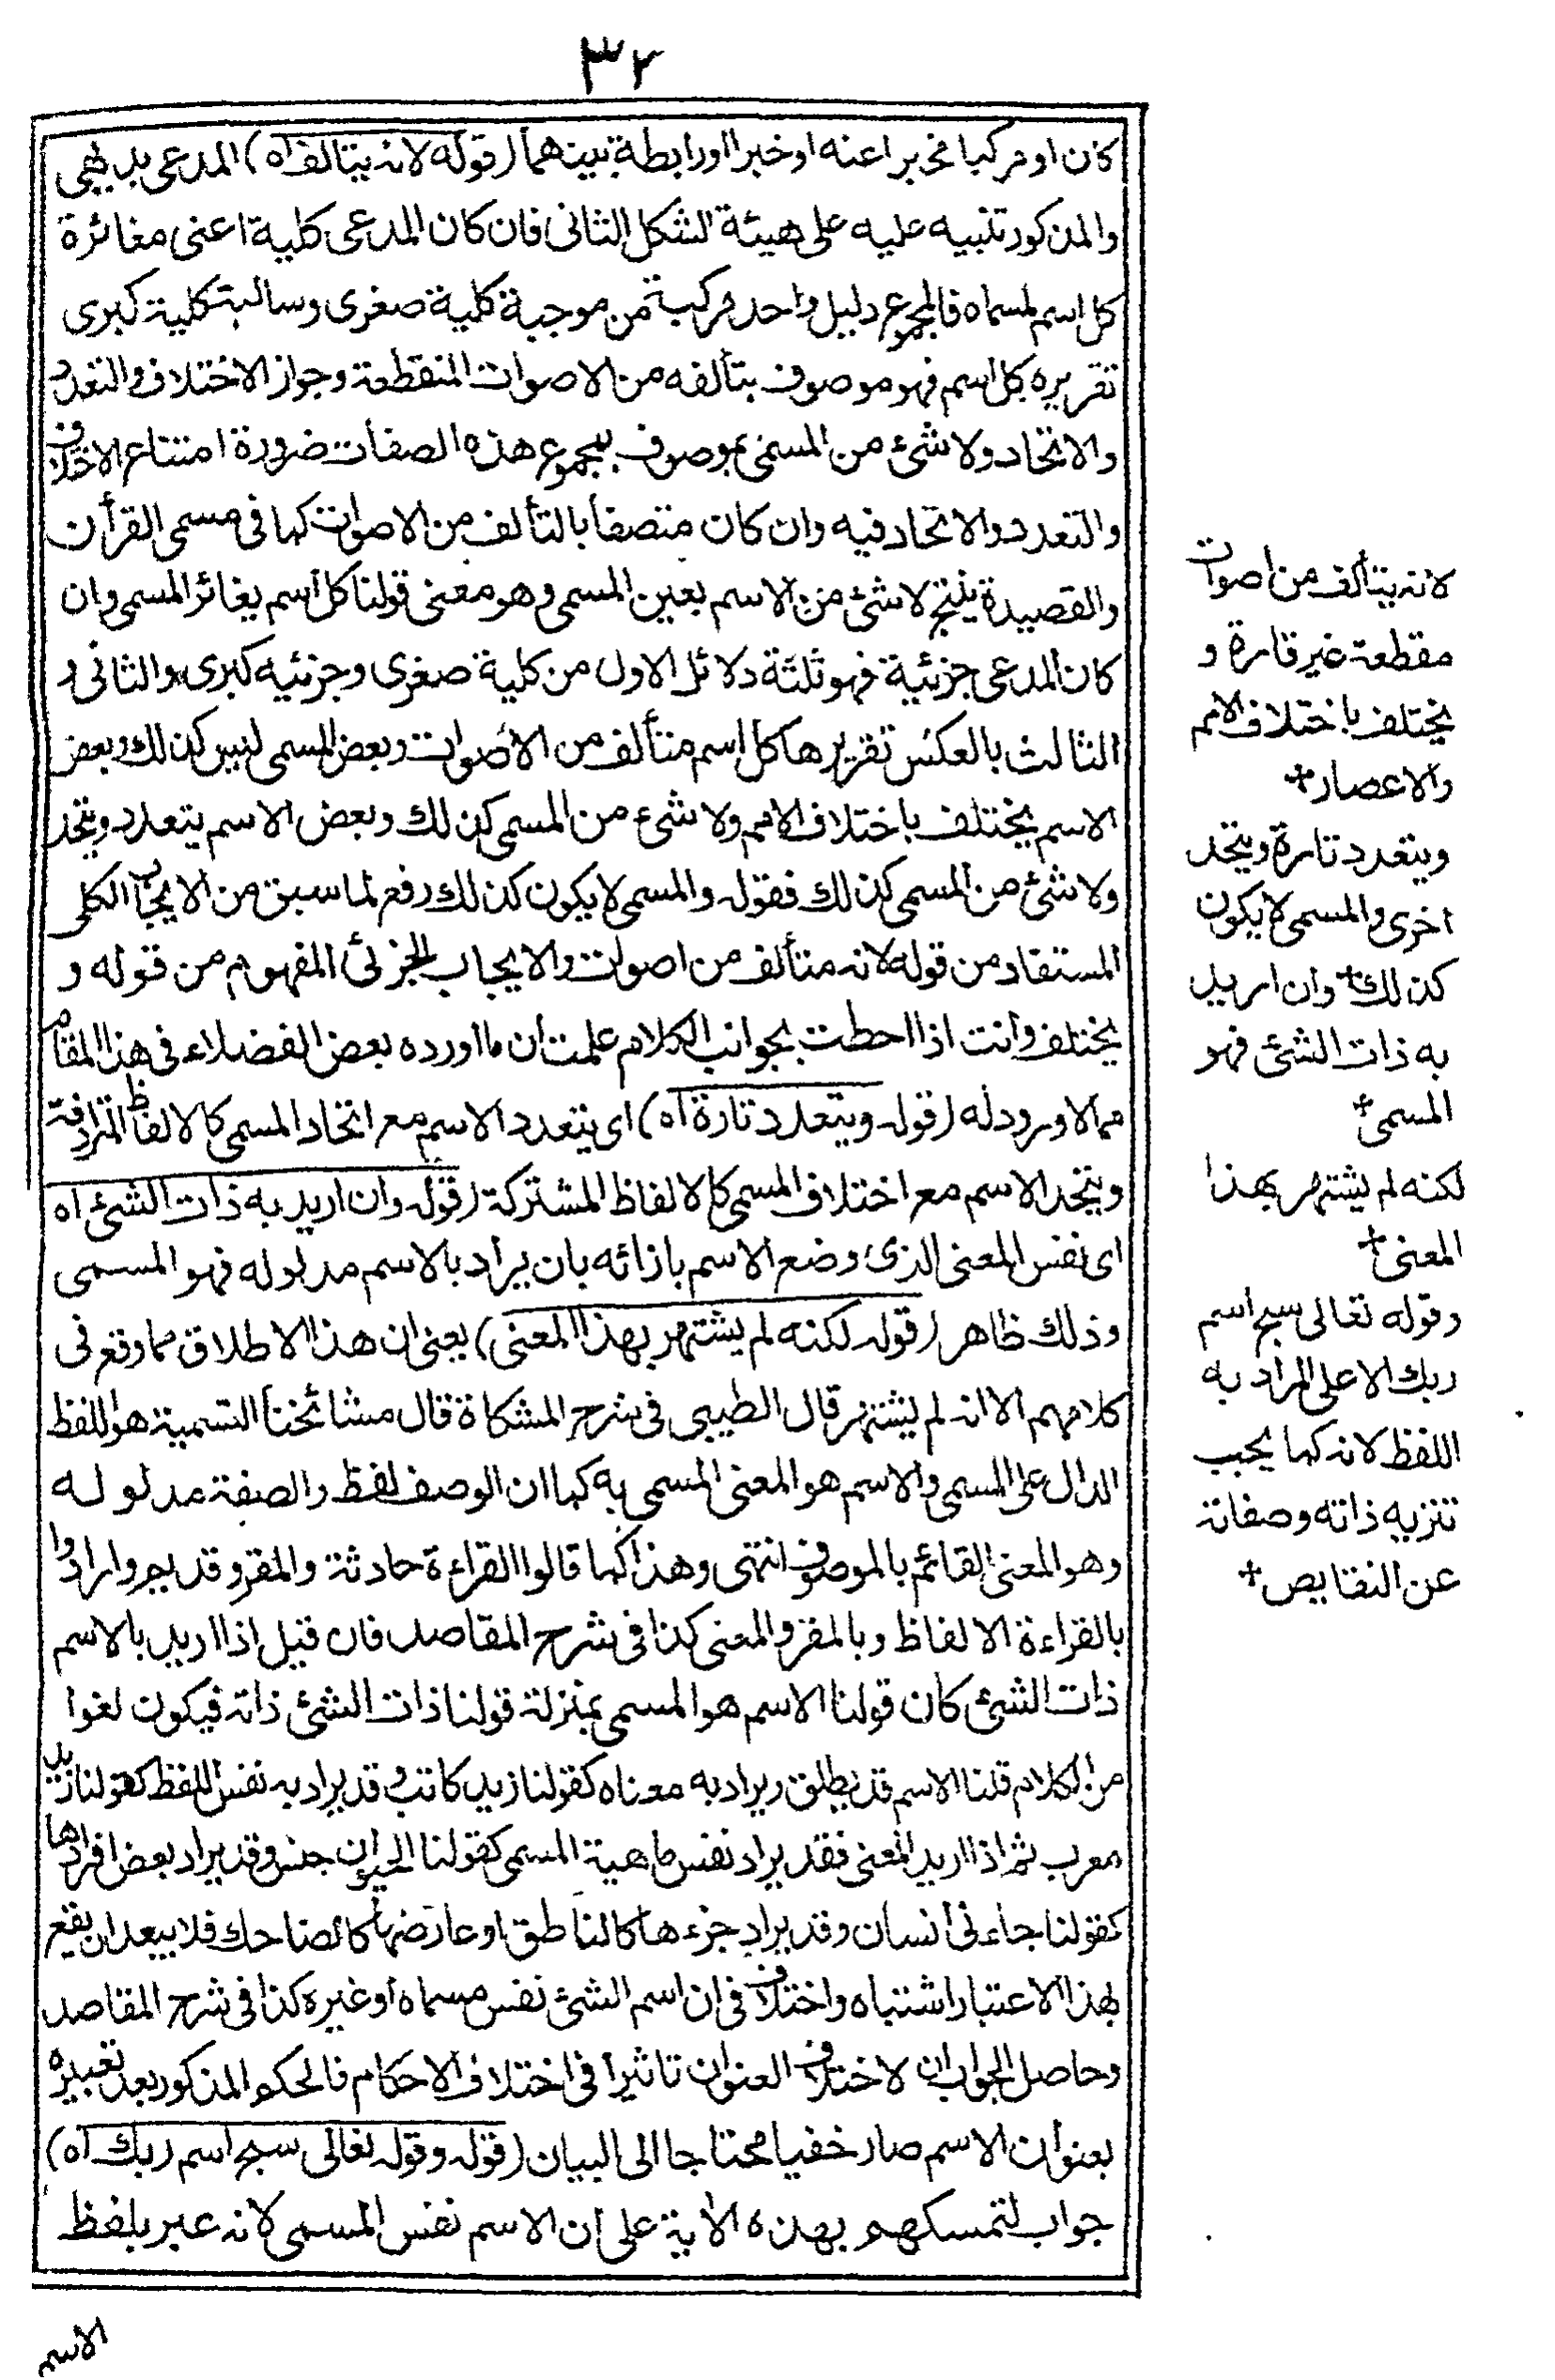 ٣٢
كان او مركبا مخبرا عنه او خبرا او رابطة بينهما (قوله لانه يتالف اه) المدعى بديهى
والمذكور تنبيه عليه على هيئة الشكل الثانى فان كان المدعى كلية اعنى مغائرة
كل اسم لمسماه فالمجموع دليل واحد مركبة من موجبة كلية صغرى وسالبة كلية كبرى
تقريره كل اسم فهو موصوف بتألفه من الاصوات المنقطعة وجواز الاختلاف والتعدد
والاتحاد ولا شئ من المسمى بموصوف بمجموع هذه الصفات ضرورة امتناع الاختلاف
والتعدد والاتحاد فيه وان كان متصفا بالتألف من الاصوات كما فى مسمى القرأن
والقصيدة ينتج لا شئ من الاسم بعين المسمى وهو معنى قولنا كل اسم يغائر المسمى وان
كان المدعى جزئية فهو ثلثة دلائل الاول من كلية صغرى وجزئيه كبرى والثانى و
الثالث بالعكس تقريرها كل اسم متألف من الأصوات وبعض المسمى ليس كذلك وبعض
الاسم يختلف باختلاف الامم ولا شئ من المسمى كذلك وبعض الاسم يتعدد ويتحد
ولا شئ من المسمى كذلك فقوله والمسمى لا يكون كذلك رفع لما سبق من الايجاب الكلى
المستفاد من قوله لانه متألف من اصوات والايجاب الجزئى المفهوم من قوله و
يختلف وانت اذا احطت بجوانب الكلام علمت أن ما اورده بعض الفضلاء فى هذا المقام
مما لا ورود له (قوله ويتعدد تارة اه) اى يتعدد الاسم مع اتحاد المسمى كالالفاظ المترادفة
ويتحد الاسم مع اختلاف المسمى كالالفاظ المشتركة (قوله وان اريد به ذات الشئ اه
اى نفس المعنى الذى وضع الاسم بازائه بان يراد بالاسم مدلوله فهو المسمى
وذلك ظاهر (قوله لكنه لم يشتهر بهذا المعنى) يعنى ان هذا الاطلاق مما وقع فى
كلامهم الا انه لم يشتهر قال الطيبى فى شرح المشكاة قال مشائخنا التسمية هو اللفظ
الدال على المسمى والاسم هو المعنى المسمى به كما ان الوصف لفظ والصفة مدلوله
وهو المعنى القائم بالموصوف انتهى وهذا كما قالوا القراءة حادثة والمقرو قديم وارادوا
بالقراءة الالفاظ وبالمقرو المعنى كذا فى شرح المقاصد فان قيل اذا اريد بالاسم
ذات الشئ كان قولنا الاسم هو المسمى بمنزلة قولنا ذات الشئ ذاته فيكون لغوا
من الكلام قلنا الاسم قد يطلق ويراد به معناه كقولنا زيد كاتب وقد يراد به نفس اللفظ كقولنا زيد
معرب ثم اذا اريد المعنى فقد يراد نفس ماهية المسمى كقولنا الحيوان جنس وقد يراد بعض افرادها
كقولنا جاءنى انسان وقد يراد جزءها كالناطق او عارضها كالضاحك فلا يبعد ان يقع
بهذا الاعتبار اشتباه واختلاف فى ان اسم الشئ نفس مسماه او غيره كذا فى شرح المقاصد
وحاصل الجواب ان لاختلاف العنوان تاثيرا فى اختلاف الاحكام فالحكم المذكور بعد تعبيره
بعنوان الاسم صار خفيا محتاجا الى البيان (قوله وقوله تعالى سبح اسم ربك اه)
جواب لتمسكهم بهذه الأية على ان الاسم نفس المسمى لانه عبر بلفظ
الاسم
لانه يتألف من اصوات
مقطعة غير قارة و
يختلف باختلاف الامم
والاعصار+
ويتعدد تارة ويتحد
اخرى والمسمى لا يكون
كذلك+ وان اريد
به ذات الشئ فهو
المسمى+
لكنه لم يشتهر بهذا
المعنى+
وقوله تعالى سبح اسم
ربك الاعلى المراد به
اللفظ لانه كما يجب
تنزيه ذاته وصفاته
عن النقايص+